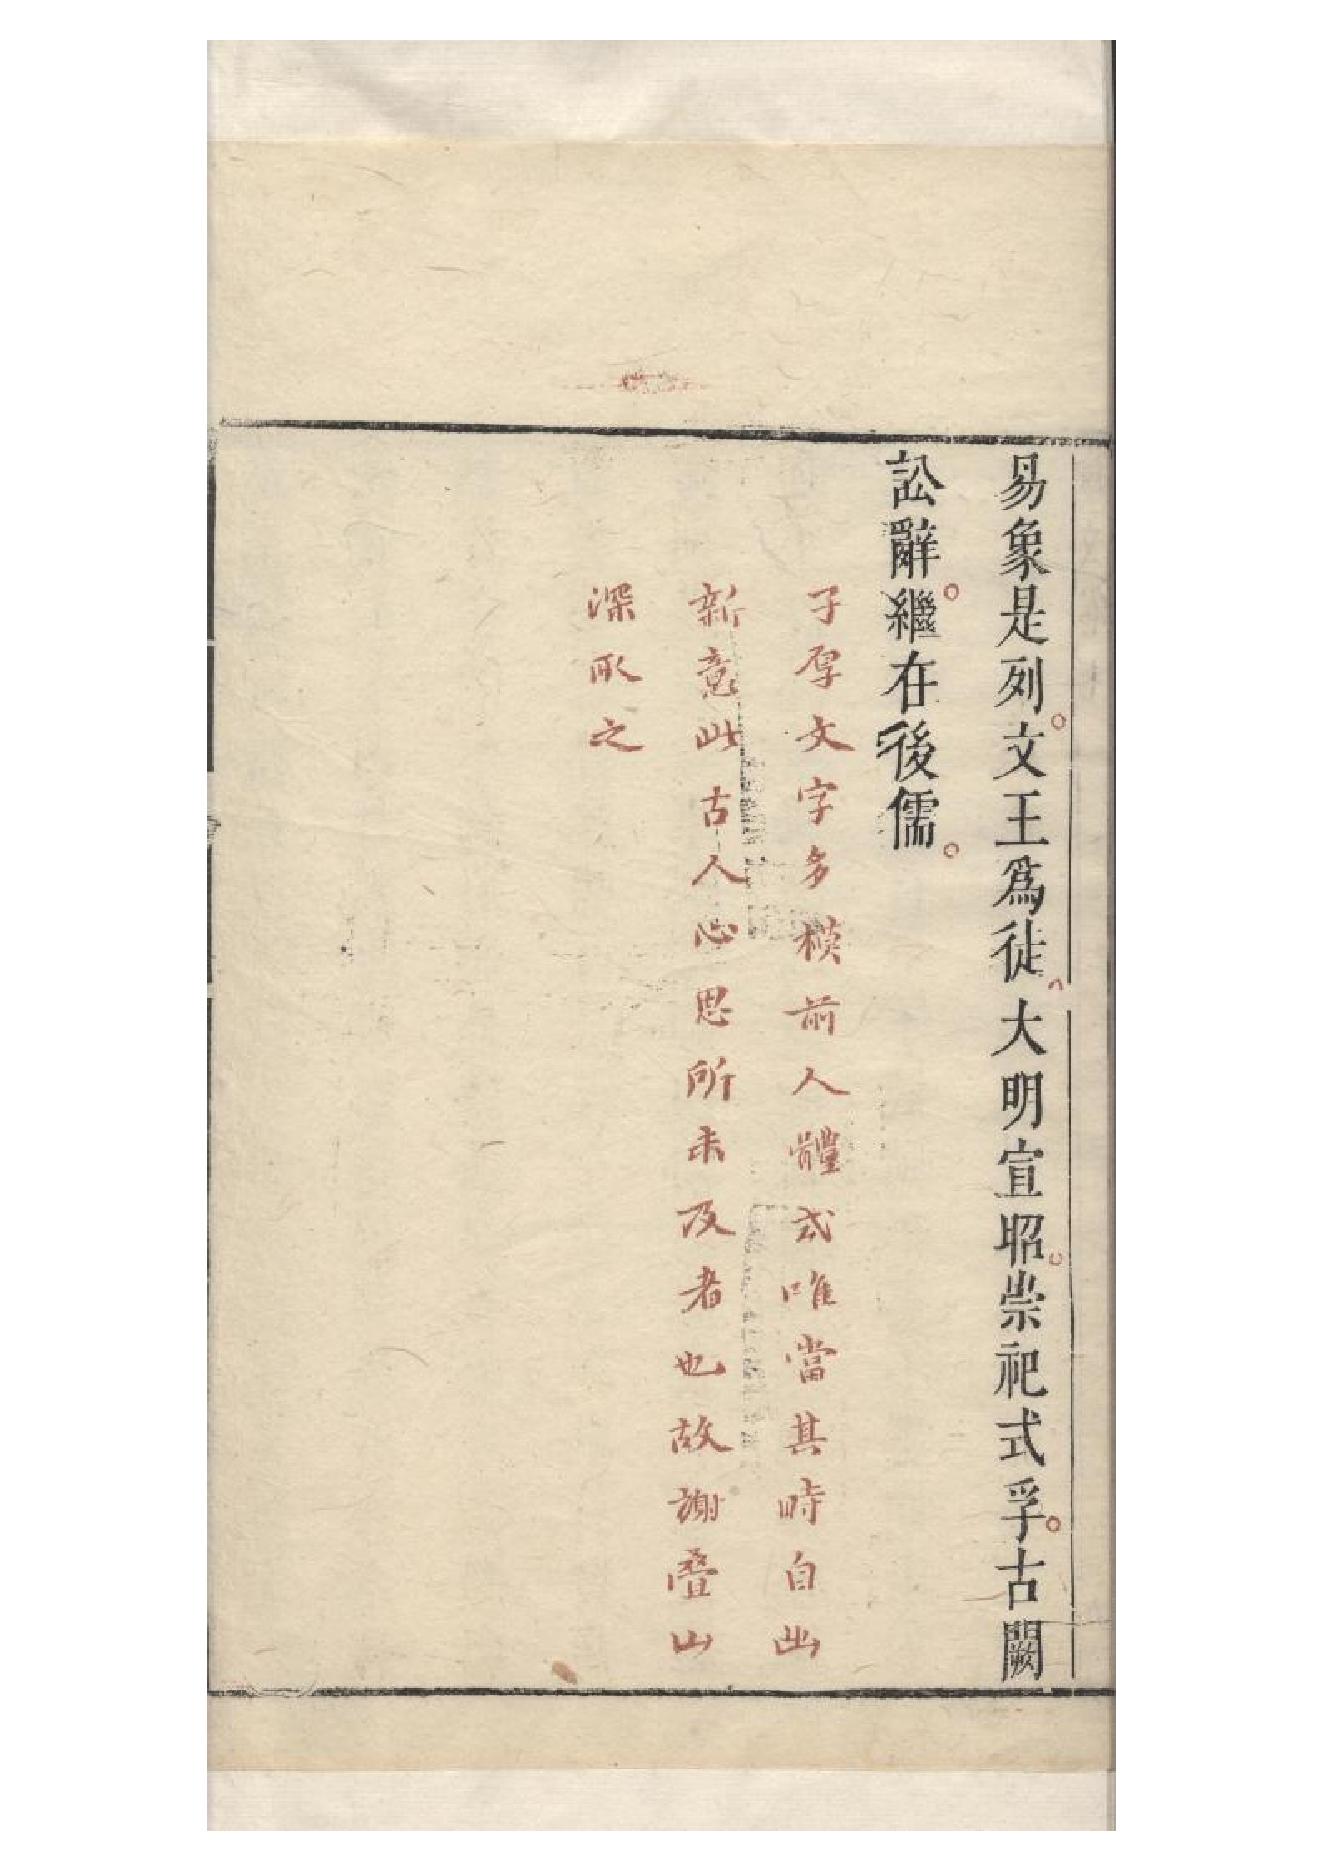 易象是列文王爲徒大明宣昭崇祀式孚古闕
訟辭繼在後儒
子厚文字多模前人體式唯當其時自出
新意此古人心思所未及者也故謝疊山
深取之